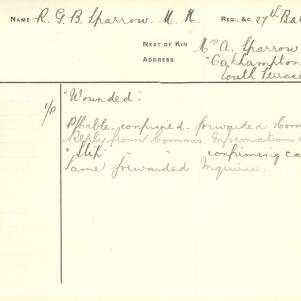 NAME R. G. B. Sparrow. M. M. REG. &C 27th Bat
NEXT OF KIN Mrs A. Sparrow
ADDRESS "Oakhampton
South Terrace
1/P "Wounded".
cable confirmed forwarded
Reply from Information
"Slip" - - confirming ca
Same forwarded Inquirer.